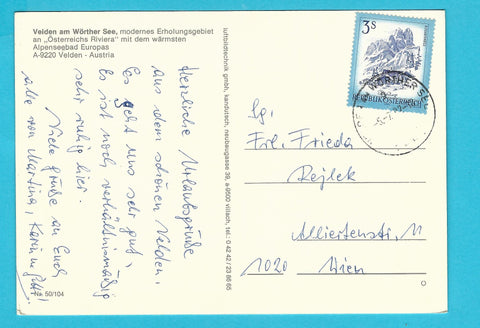 Velden am Wörther See, modernes Erholungsgebiet
an „Österreichs Riviera" mit dem wärmsten
Alpenseebad Europas
A-9220 Velden - Austria
Herrliche Urlaubsgrüße
aus dem schönen Velden.
Es geht uns sehr gut,
es ist noch verhältnismäßig
sehr ruhig hier.
Viele Grüße an Euch
alle von Martina, Karin u.
50/104
luftbildtechnik gmbh, kandutsch, a-9500 villach, tel.: 0 42 42 / 23 86 65
3S
REPUBLIK ÖSTERREICH
WÖRTHER SEE
Frl. Frieda
Rejlek
Alliiertenstr. 11
1020 Wien